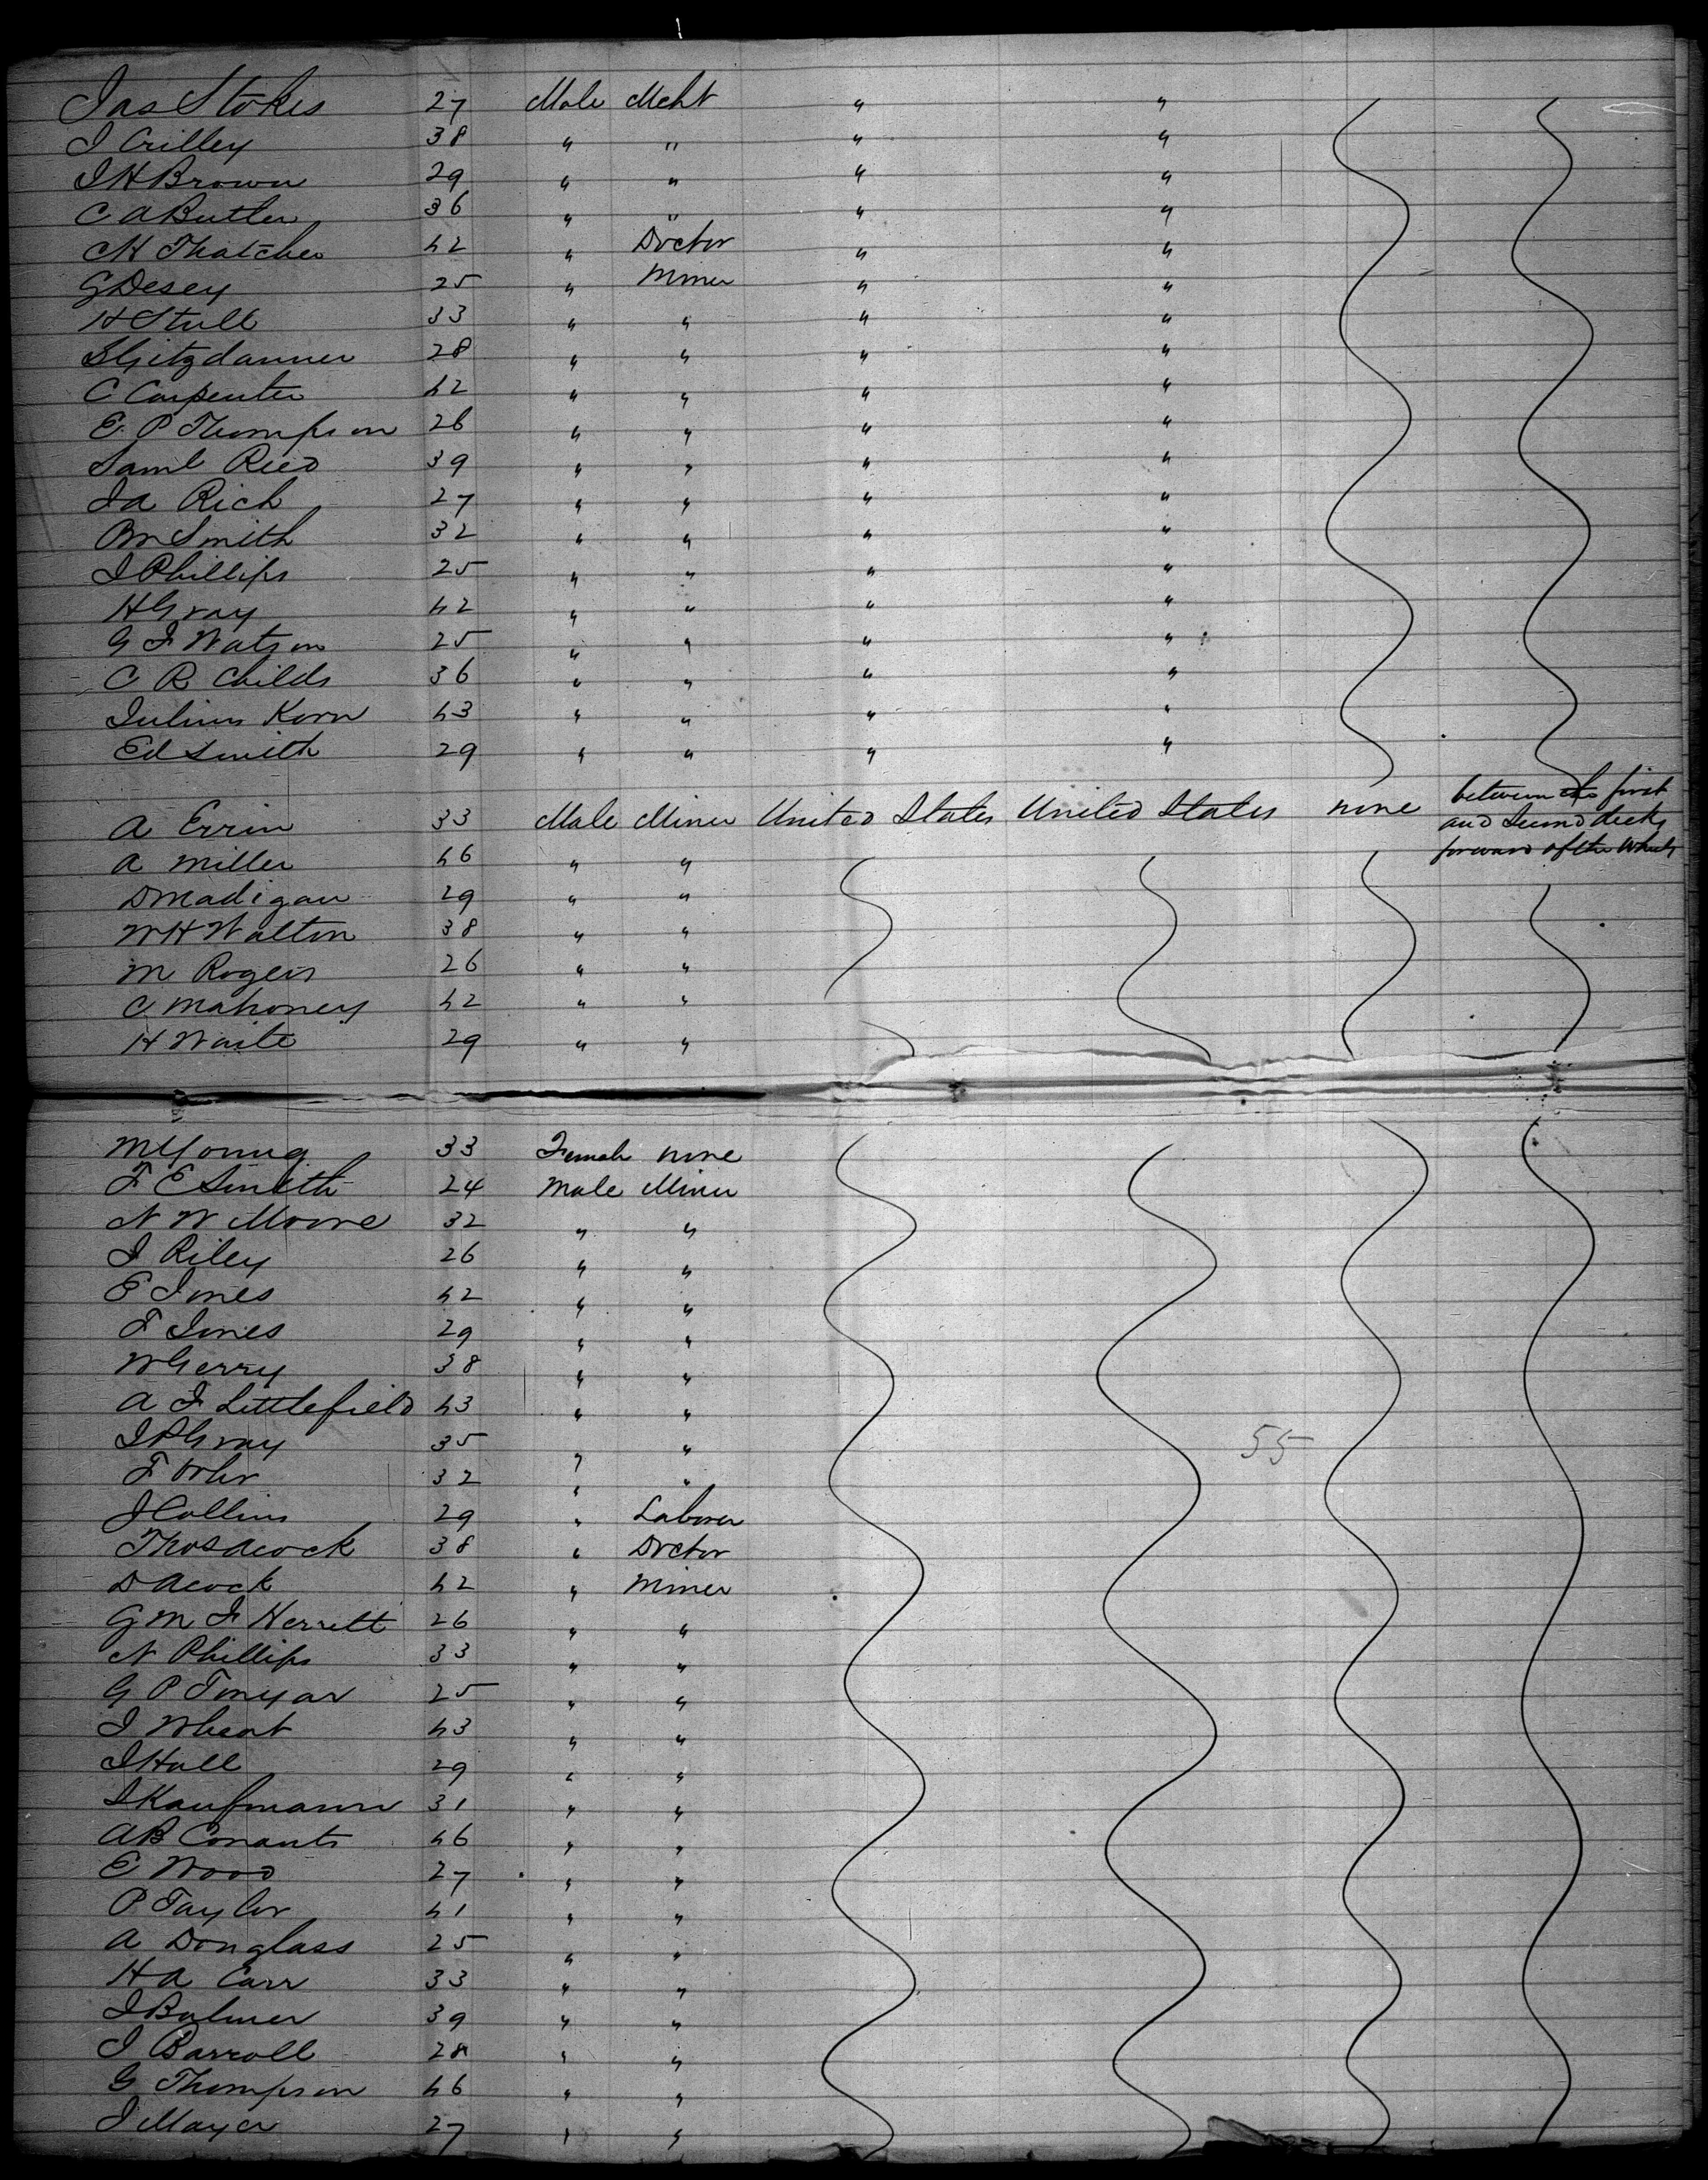 Jas Stokes 27 Male Mcht " "
J Crilley 38 " " " "
J H Brown 29 " " " "
C A Butler 36 " " " "
C H Thatcher 42 " Doctor " "
G Desey 25 " Miner " "
H Stull 33 " " " "
S Gitzdanner 28 " " " "
C Carpenter 42 " " " "
E. P Thompson 26 " " " "
Saml Reed 39 " " " "
J A Rich 27 " " " "
B M Smith 32 " " " "
J Phillips 25 " " " "
H Gray 42 " " " "
G F Watson 25 " " " "
C R Childs 36 " " " "
Julius Korn 43 " " " "
Ed Smith 29 " " " "
A Errin 33 Male Miner United States United States none between the first and Second decks forward of the Wheels
A Miller 46 " "
D Madigan 29 " "
W H Walton 38 " "
M Rogers 26 " "
C Mahoney 42 " "
H Waite 29 " "
M Young 33 Female none
F E Smith 24 Male Miner
N W Moore 32 " "
J Riley 26 " "
E Jones 42 " "
F Jones 29 " "
W Gerry 38 " "
A F Littlefield 43 " "
J P Gray 35 " "
F Ohr 32 " "
55
J Collins 29 " Laborer
Thos Acock 38 " Doctor
D Acock 42 " Miner
G M F Herrett 26 " "
N Phillips 33 " "
G P Tonyar 25 " "
J Wheat 43 " "
J Hall 29 " "
J Kaufmann 31 " "
A B Conants 46 " "
E Wood 27 " "
P Taylor 41 " "
A Douglass 25 " "
H A Carr 33 " "
J Balmer 39 " "
J Barroll 28 " "
G Thompson 46 " "
J Mayer 27 " "